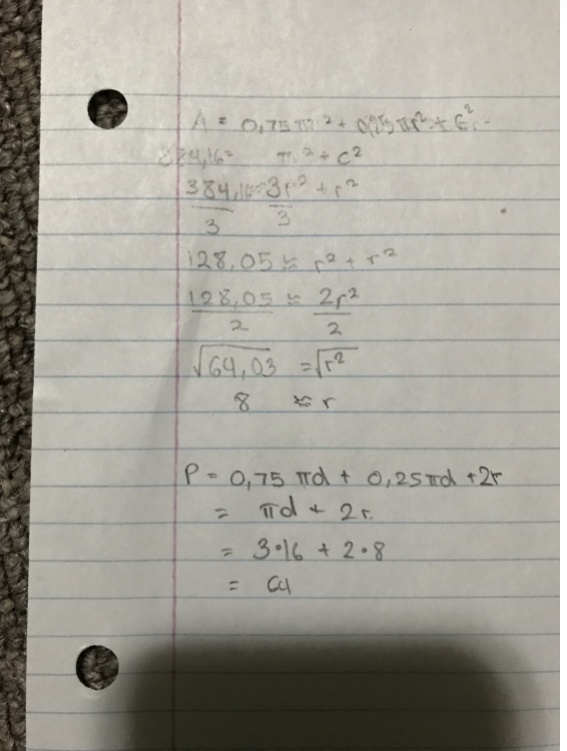 A = 0,75πr² + 0,25πr² + r²
384,16 = πr² + r²
384,16 ≈ 3r² + r²
3 3
128,05 ≈ r² + r²
128,05 ≈ 2r²
2 2
√64,03 = √r²
8 ≈ r
P = 0,75 πd + 0,25πd + 2r
= πd + 2r
= 3•16 + 2•8
= 64